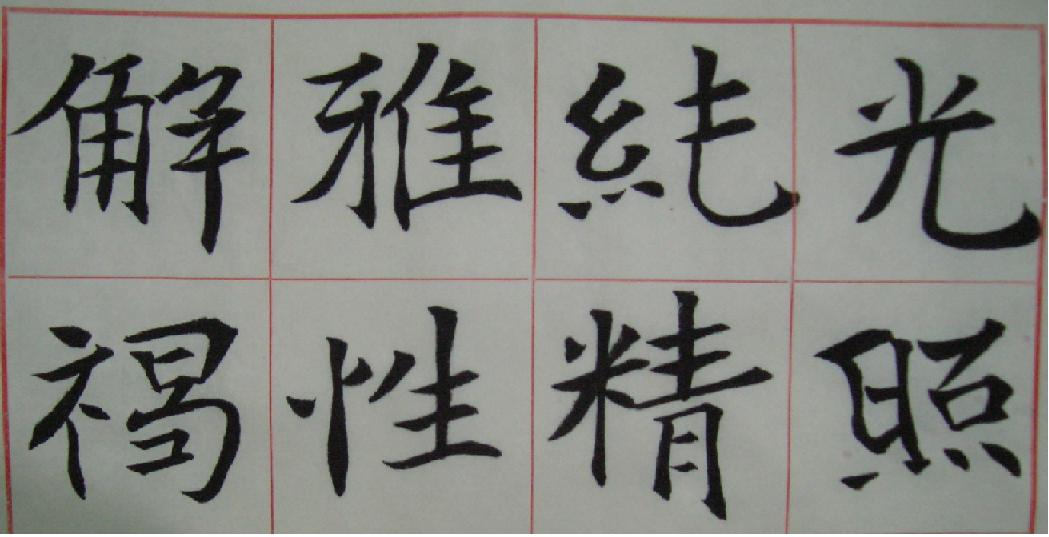 光照
純精
雅性
解褐